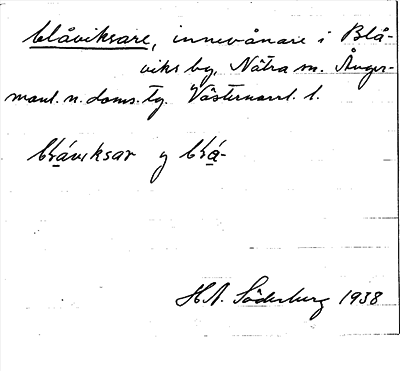 blåviksare, innevånare i Blå-
viks by, Nätra sn. Ånger-
manl. n. doms. tg. Västernorrl. l.
bɫáviksar bɫá-
H.A. Söderberg 1938